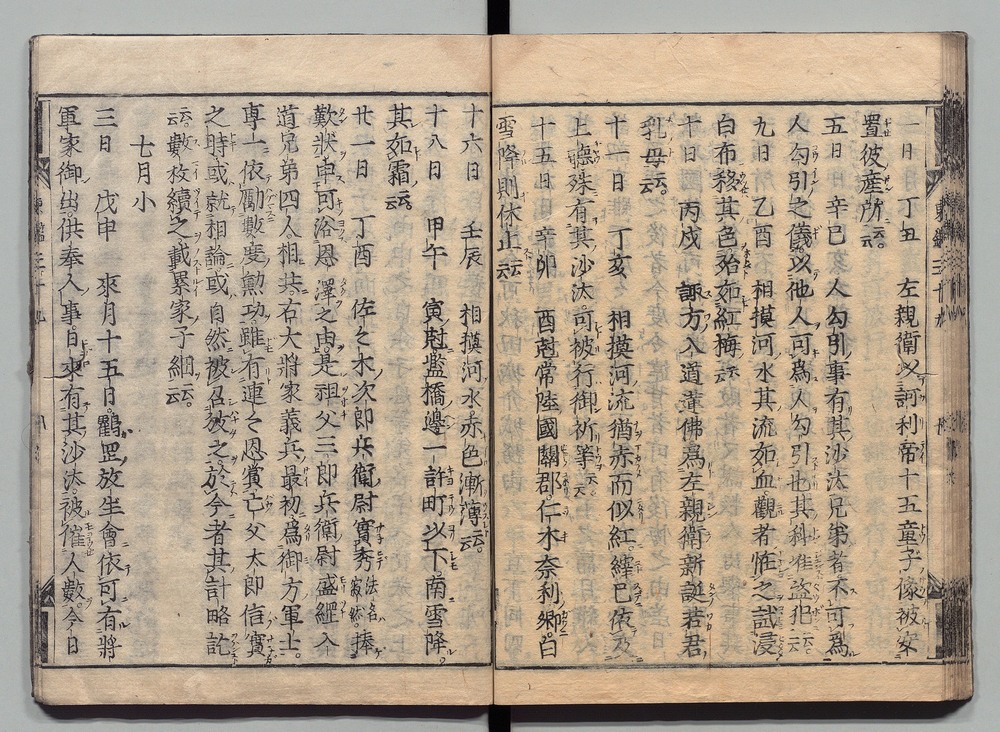 一日 丁丑 左親衛以訶利帝十五童子像被安
置彼産所云云
五日 辛巳 人勾引事有其沙汰兄弟者不可爲
人勾引之儀以他人可爲人勾引也其科准盗犯云云
九日 乙酉 相摸河水其流如血觀者恠之試浸
白布移其色殆如紅梅云云
十日 丙戍 諏方入道蓮佛爲左親衛新誕若君
乳母云云
十一日 丁亥 相摸河流猶赤而似紅繹巳依及
上聽殊有其沙汰可被行御祈等云云
十五日 辛卯 酉尅常陸國關郡仁木奈利郷白
雪降則休止云云
十六日 壬辰 相摸河水赤色漸薄云云
十八日 甲午 寅尅濫橋邊一許町以下南雪降
其如霜云云
廿一日 丁酉 佐々木次郎兵衛尉實秀法名寂然捧
歎状申可浴恩澤之由是祖父三郎兵衛尉盛綱入
道兄弟四人相共右大將家義兵最初爲御方軍士
専一依勵數度勲功雖有連々恩賞亡父太郎信實
之時或就相論或自然被召放之於今者其計略訖
云云數枚續之載累家子細云云
七月小
三日 戊申 來月十五日鶴岡放生會依可有將
軍家御出供奉人事日來有其沙汰被催人數今日